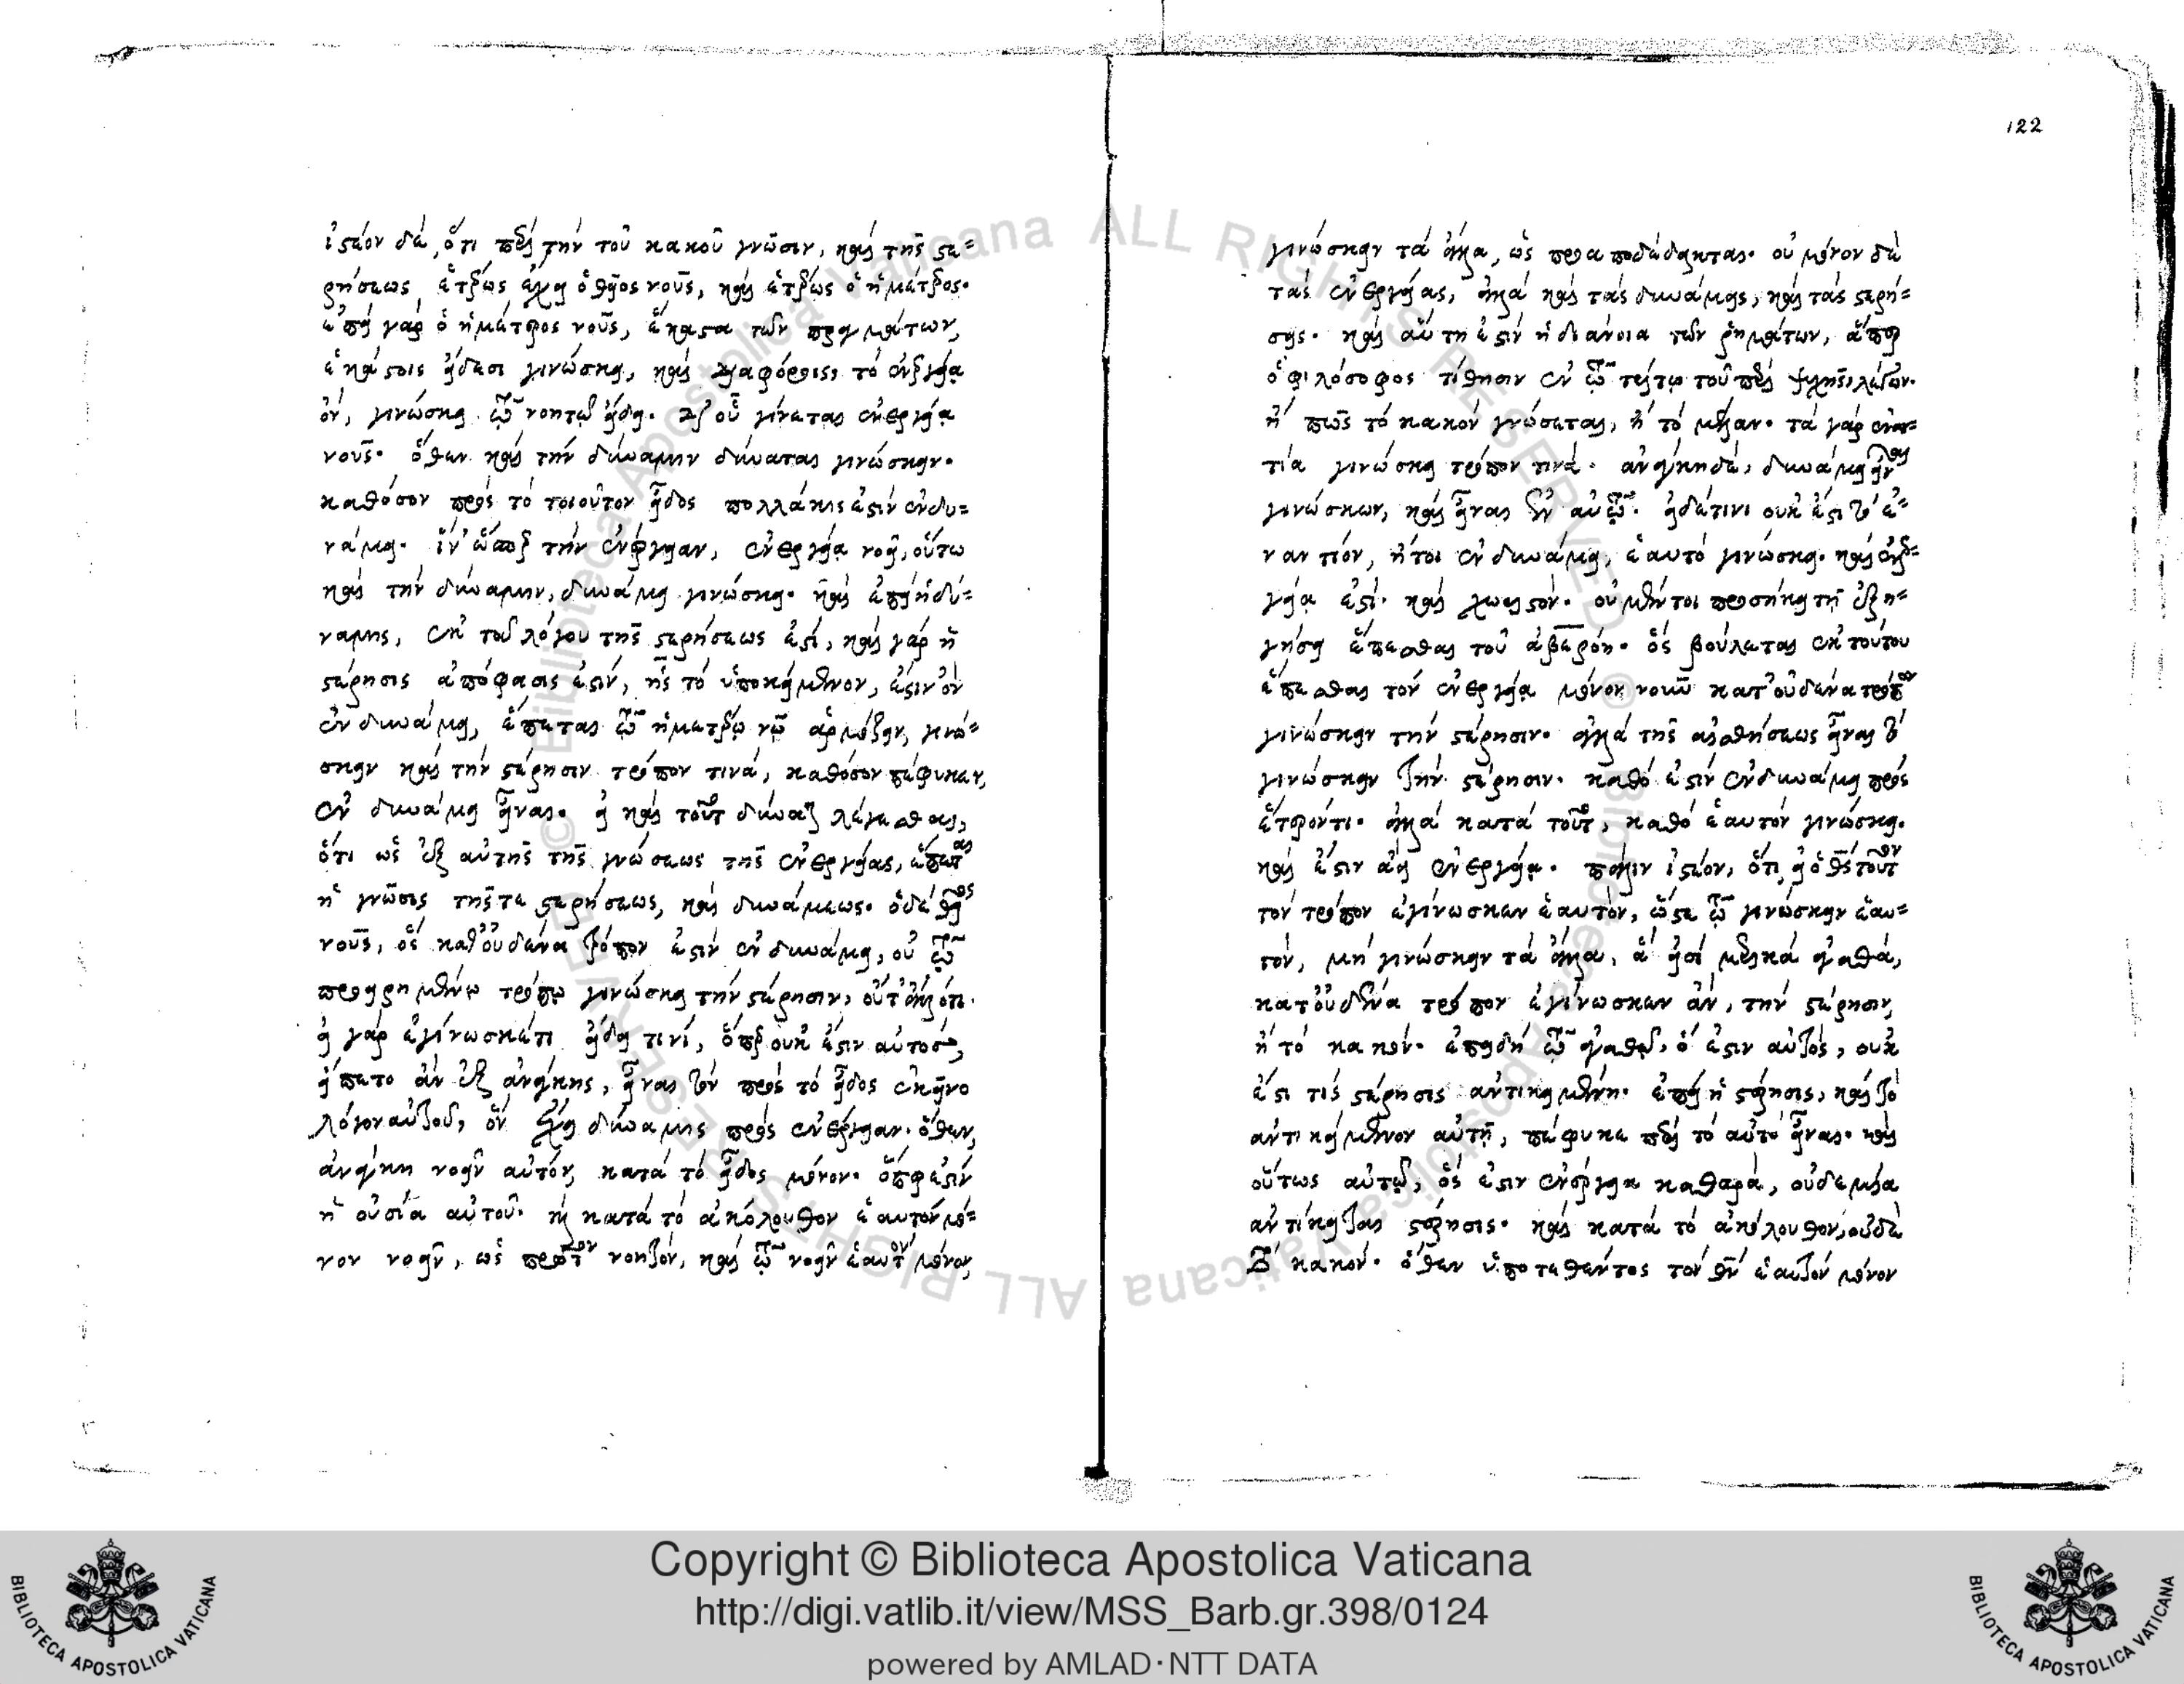 122
ἰστέον δὲ, ὅτι περὶ τὴν τοῦ κακοῦ γνῶσιν, καὶ τῆς στε=
ρήσεως, ἑτέρως ἔχει ὁ θεῖος νοῦς, καὶ ἑτέρως ὁ ἡμέτερος.
ἐπεὶ γὰρ ὁ ἡμέτερος νοῦς, ἕκαστα τῶν πραγμάτων,
ἑκάστοις εἴδεσι γινώσκει, καὶ διαφόροις, τὸ ἐνεργείᾳ
ὂν, γινώσκει τῷ νοητῷ εἴδει. δι' οὗ γίνεται ἐνεργείᾳ
νοῦς. ὅθεν καὶ τὴν δύναμιν δύναται γινώσκειν.
καθόσον πρὸς τὸ τοιοῦτον εἶδος πολλάκις ἐστὶν ἐν δυ=
νάμει. ἵν' ὥσπερ τὴν ἐνέργειαν, ἐνεργείᾳ νοεῖ, οὕτω
καὶ τὴν δύναμιν, δυνάμει γινώσκει. καὶ ἐπεὶ ἡ δύ=
ναμις, ἐκ τοῦ λόγου τῆς στερήσεως ἐστί, καὶ γὰρ ἡ
στέρησις ἀπόφασις ἐστίν, ἧς τὸ ὑποκείμενον, ἐστιν ὂν
ἐν δυνάμει, ἕπεται τῷ ἡμετέρῳ νῷ ἁρμόζειν, γινώ=
σκειν καὶ τὴν στέρησιν τρόπον τινά, καθόσον πέφυκεν,
ἐν δυνάμει εἶναι. εἰ καὶ τοῦτο δύναται λέγεσθαι,
ὅτι ὡς ἐξ αὐτῆς τῆς γνώσεως τῆς ἐνεργείας, ἕπεται
ἡ γνῶσις τῆς τε στερήσεως, καὶ δυνάμεως. ὁ δὲ θεῖος
νοῦς, ὃς κατ' οὐδένα τρόπον ἐστὶν ἐν δυνάμει, οὐ τῷ
προειρημένῳ τρόπῳ γινώσκει τὴν στέρησιν, οὔτ' ἄλλό τι.
εἰ γὰρ ἐγίνωσκέ τι εἴδει τινί, ὅπερ οὐκ ἔστιν αὐτός,
εἵπετο ἂν ἐξ ἀνάγκης, εἶναι τὸν πρὸς τὸ εἶδος ἐκεῖνο
λόγον αὐτοῦ, ὃν ἔχει δύναμις πρὸς ἐνέργειαν. ὅθεν,
ἀνάγκη νοεῖν αὐτόν, κατὰ τὸ εἶδος μόνον. ὅπερ ἐστὶν
ἡ οὐσία αὐτοῦ. καὶ κατὰ τὸ ἀκόλουθον ἑαυτὸν μό=
νον νοεῖν, ὡς πρῶτον νοητόν, καὶ τῷ νοεῖν ἑαυτὸν μόνον,
γινώσκειν τὰ ἄλλα, ὡς προαποδέδεικται. οὐ μόνον δὲ
τὰς ἐνεργείας, ἀλλὰ καὶ τὰς δυνάμεις, καὶ τὰς στερή=
σεις. καὶ αὕτη ἐστὶν ἡ διάνοια τῶν ῥημάτων, ἅπερ
ὁ φιλόσοφος τίθησιν ἐν τῷ τρίτῳ τοῦ περὶ ψυχῆς λέγων.
ἢ πῶς τὸ κακὸν γνώσεται, ἢ τὸ μέλαν. τὰ γὰρ ἐναν=
τία γινώσκει τρόπον τινά. ἀνάγκη δὲ, δυνάμει εἶναι
γινώσκων, καὶ εἶναι ἓν αὐτῷ. εἰ δέ τινι οὐκ ἔστι τὸ ἐ=
ναντίον, ἤτοι ἐν δυνάμει, ἑαυτὸ γινώσκει. καὶ ἐνερ=
γείᾳ ἐστί. καὶ χωριστόν. οὐ μέντοι προσήκει τῇ ἐξη=
γήσει ἕπεσθαι τοῦ ἀβερόη. ὃς βούλεται ἐκ τούτου
ἕπεσθαι τὸν ἐνεργείᾳ μόνον νοῦν κατ' οὐδένα τρόπον
γινώσκειν τὴν στέρησιν. ἀλλὰ τῆς αἰσθήσεως εἶναι τὸ
γινώσκειν τὴν στέρησιν. καθό ἐστιν ἐν δυνάμει πρὸς
ἕτερόν τι. ἀλλὰ κατὰ τοῦτο, καθὸ ἑαυτὸν γινώσκει.
καὶ ἔστιν ἀεὶ ἐνεργείᾳ. πάλιν ἰστέον, ὅτι εἰ ὁ θεὸς τοῦτον
τὸν τρόπον ἐγίνωσκεν ἑαυτόν, ὥστε τῷ γινώσκειν ἑαυ=
τόν, μὴ γινώσκειν τὰ ἄλλα, ἅ εἰσι μερικὰ ἀγαθά,
κατ' οὐδένα τρόπον ἐγίνωσκεν ἂν, τὴν στέρησιν,
ἢ τὸ κακόν. ἐπειδὴ τῷ ἀγαθῷ, ὅ ἐστιν αὐτός, οὐκ
ἔστι τίς στέρησις ἀντικειμένη. ἐπεὶ ἡ στέρησις, καὶ τὸ
ἀντικείμενον αὐτῇ, πέφυκε περὶ τὸ αὐτὸ εἶναι. καὶ
οὕτως αὐτῷ, ὅς ἐστιν ἐνέργεια καθαρά, οὐδεμία
ἀντίκειται στέρησις. καὶ κατὰ τὸ ἀκόλουθον, οὐδὲ
τὸ κακόν. ὅθεν ὑποτεθέντος τὸν θεὸν ἑαυτὸν μόνον
Copyright © Biblioteca Apostolica Vaticana
http://digi.vatlib.it/view/MSS_Barb.gr.398/0124
powered by AMLAD·NTT DATA
BIBLIOTECA APOSTOLICA VATICANA
BIBLIOTECA APOSTOLICA VATICANA
© Biblioteca Apostolica Vaticana ALL RIGHTS RESERVED
© Biblioteca Apostolica Vaticana ALL RIGHTS RESERVED